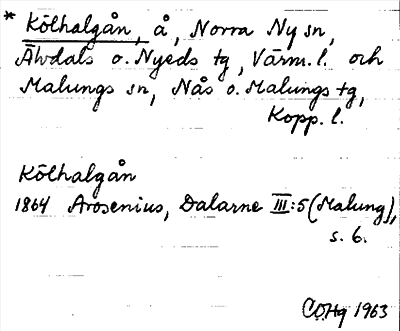 * Kölhalgån, å, Norra Ny sn,
Älvdals o. Nyeds tg, Värm. l. och
Malungs sn, Nås o. Malungs tg,
Kopp. l.
Kölhalgån
1864 Arosenius, Dalarne III:5 (Malung),
s. 6.
COHg 1963